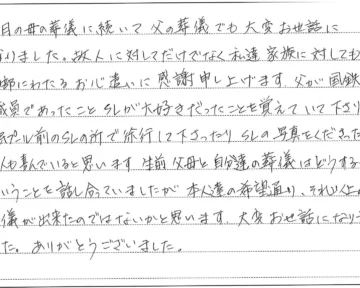 日の母の葬儀に続いて父の葬儀でも大変お世話に
なりました。故人に対してだけでなく私達家族に対しても
部にわたるお心遣いに感謝申し上げます。父が国鉄
職員であったこと SLが大好きだったことを覚えていて下さり
プール前のSLの所で徐行して下さったり SLの写真をくださった
人も喜んでいると思います。生前父母と自分達の葬儀はどうする
いうことを話し合っていましたが 本人達の希望通り、それ以上の
儀が出来たのではないかと思います。大変お世話になりま
た。ありがとうございました。